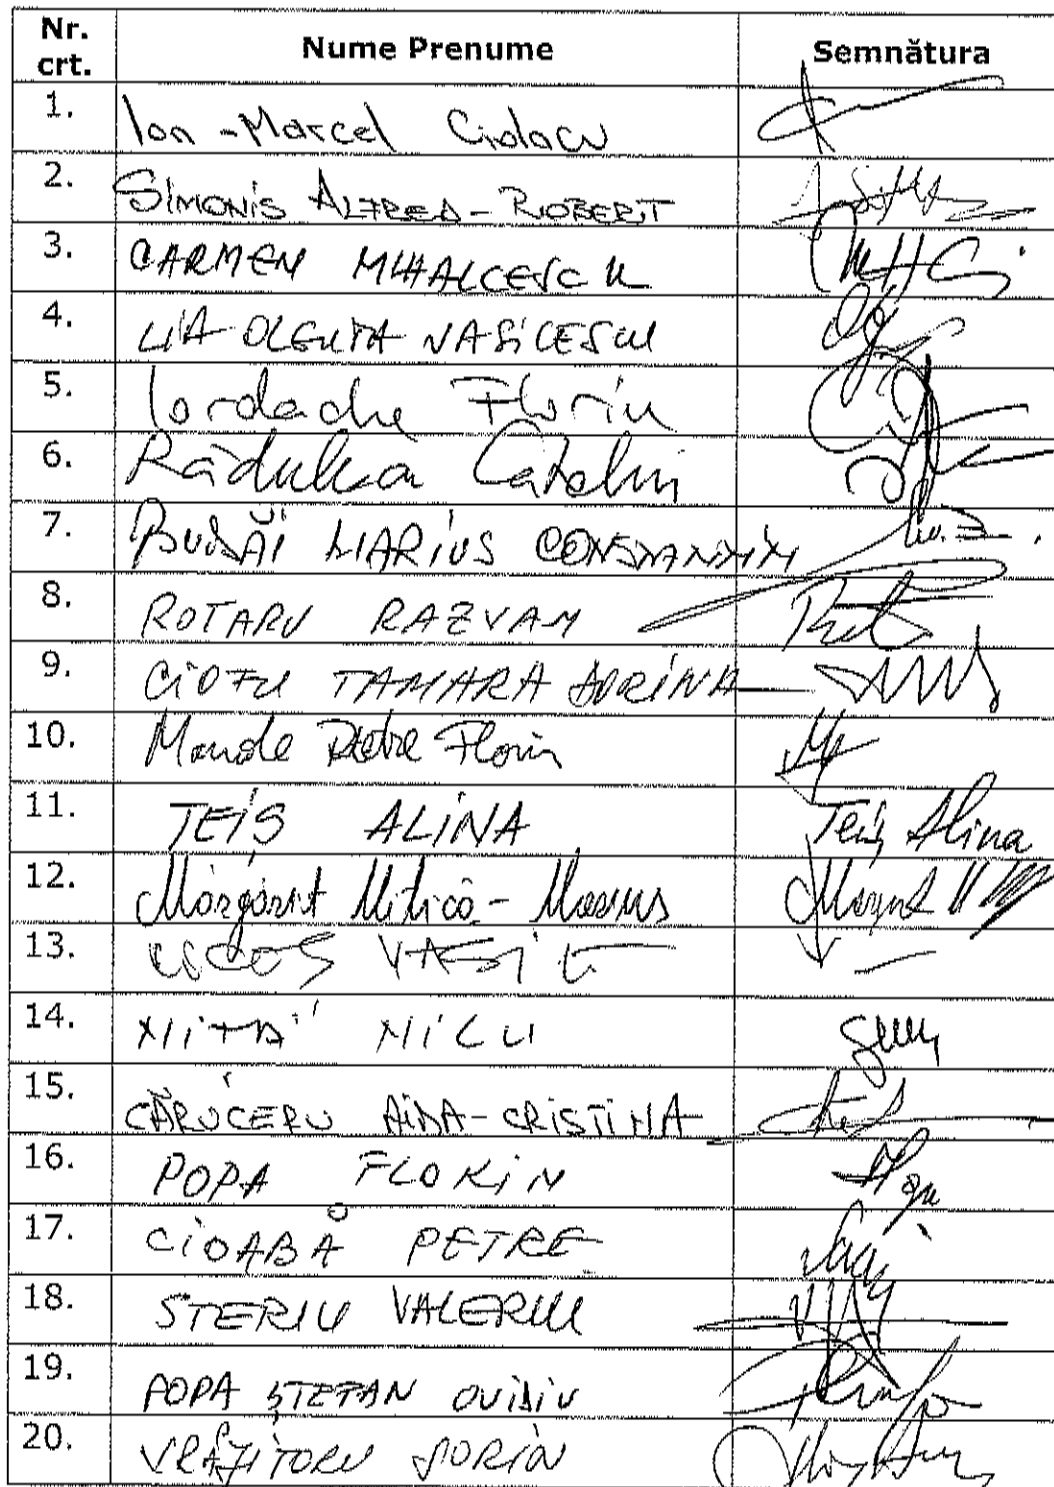 Nr. crt. Nume Prenume Semnătura
1. Ion-Marcel Ciolacu
2. SIMONIS ALFRED-ROBERT
3. CARMEN MIHALCESCU
4. LIA OLGUTA VASILESCU
5. Iordache Florin
6. Rădulescu Cătălin
7. BUDĂI MARIUS CONSTANTIN
8. ROTARU RAZVAN
9. CIOFU TAMARA DORINA
10. Manole Petre Florin
11. TEIS ALINA Teiș Alina
12. Mărgărit Mitică-Marius
13. COCOS VASILE
14. NIȚĂ NICU
15. CĂRUCERU AIDA-CRISTINA
16. POPA FLORIN
17. CIOABĂ PETRE
18. STERIU VALERIU
19. POPA ȘTEFAN OVIDIU
20. VRĂJITORU SORIN